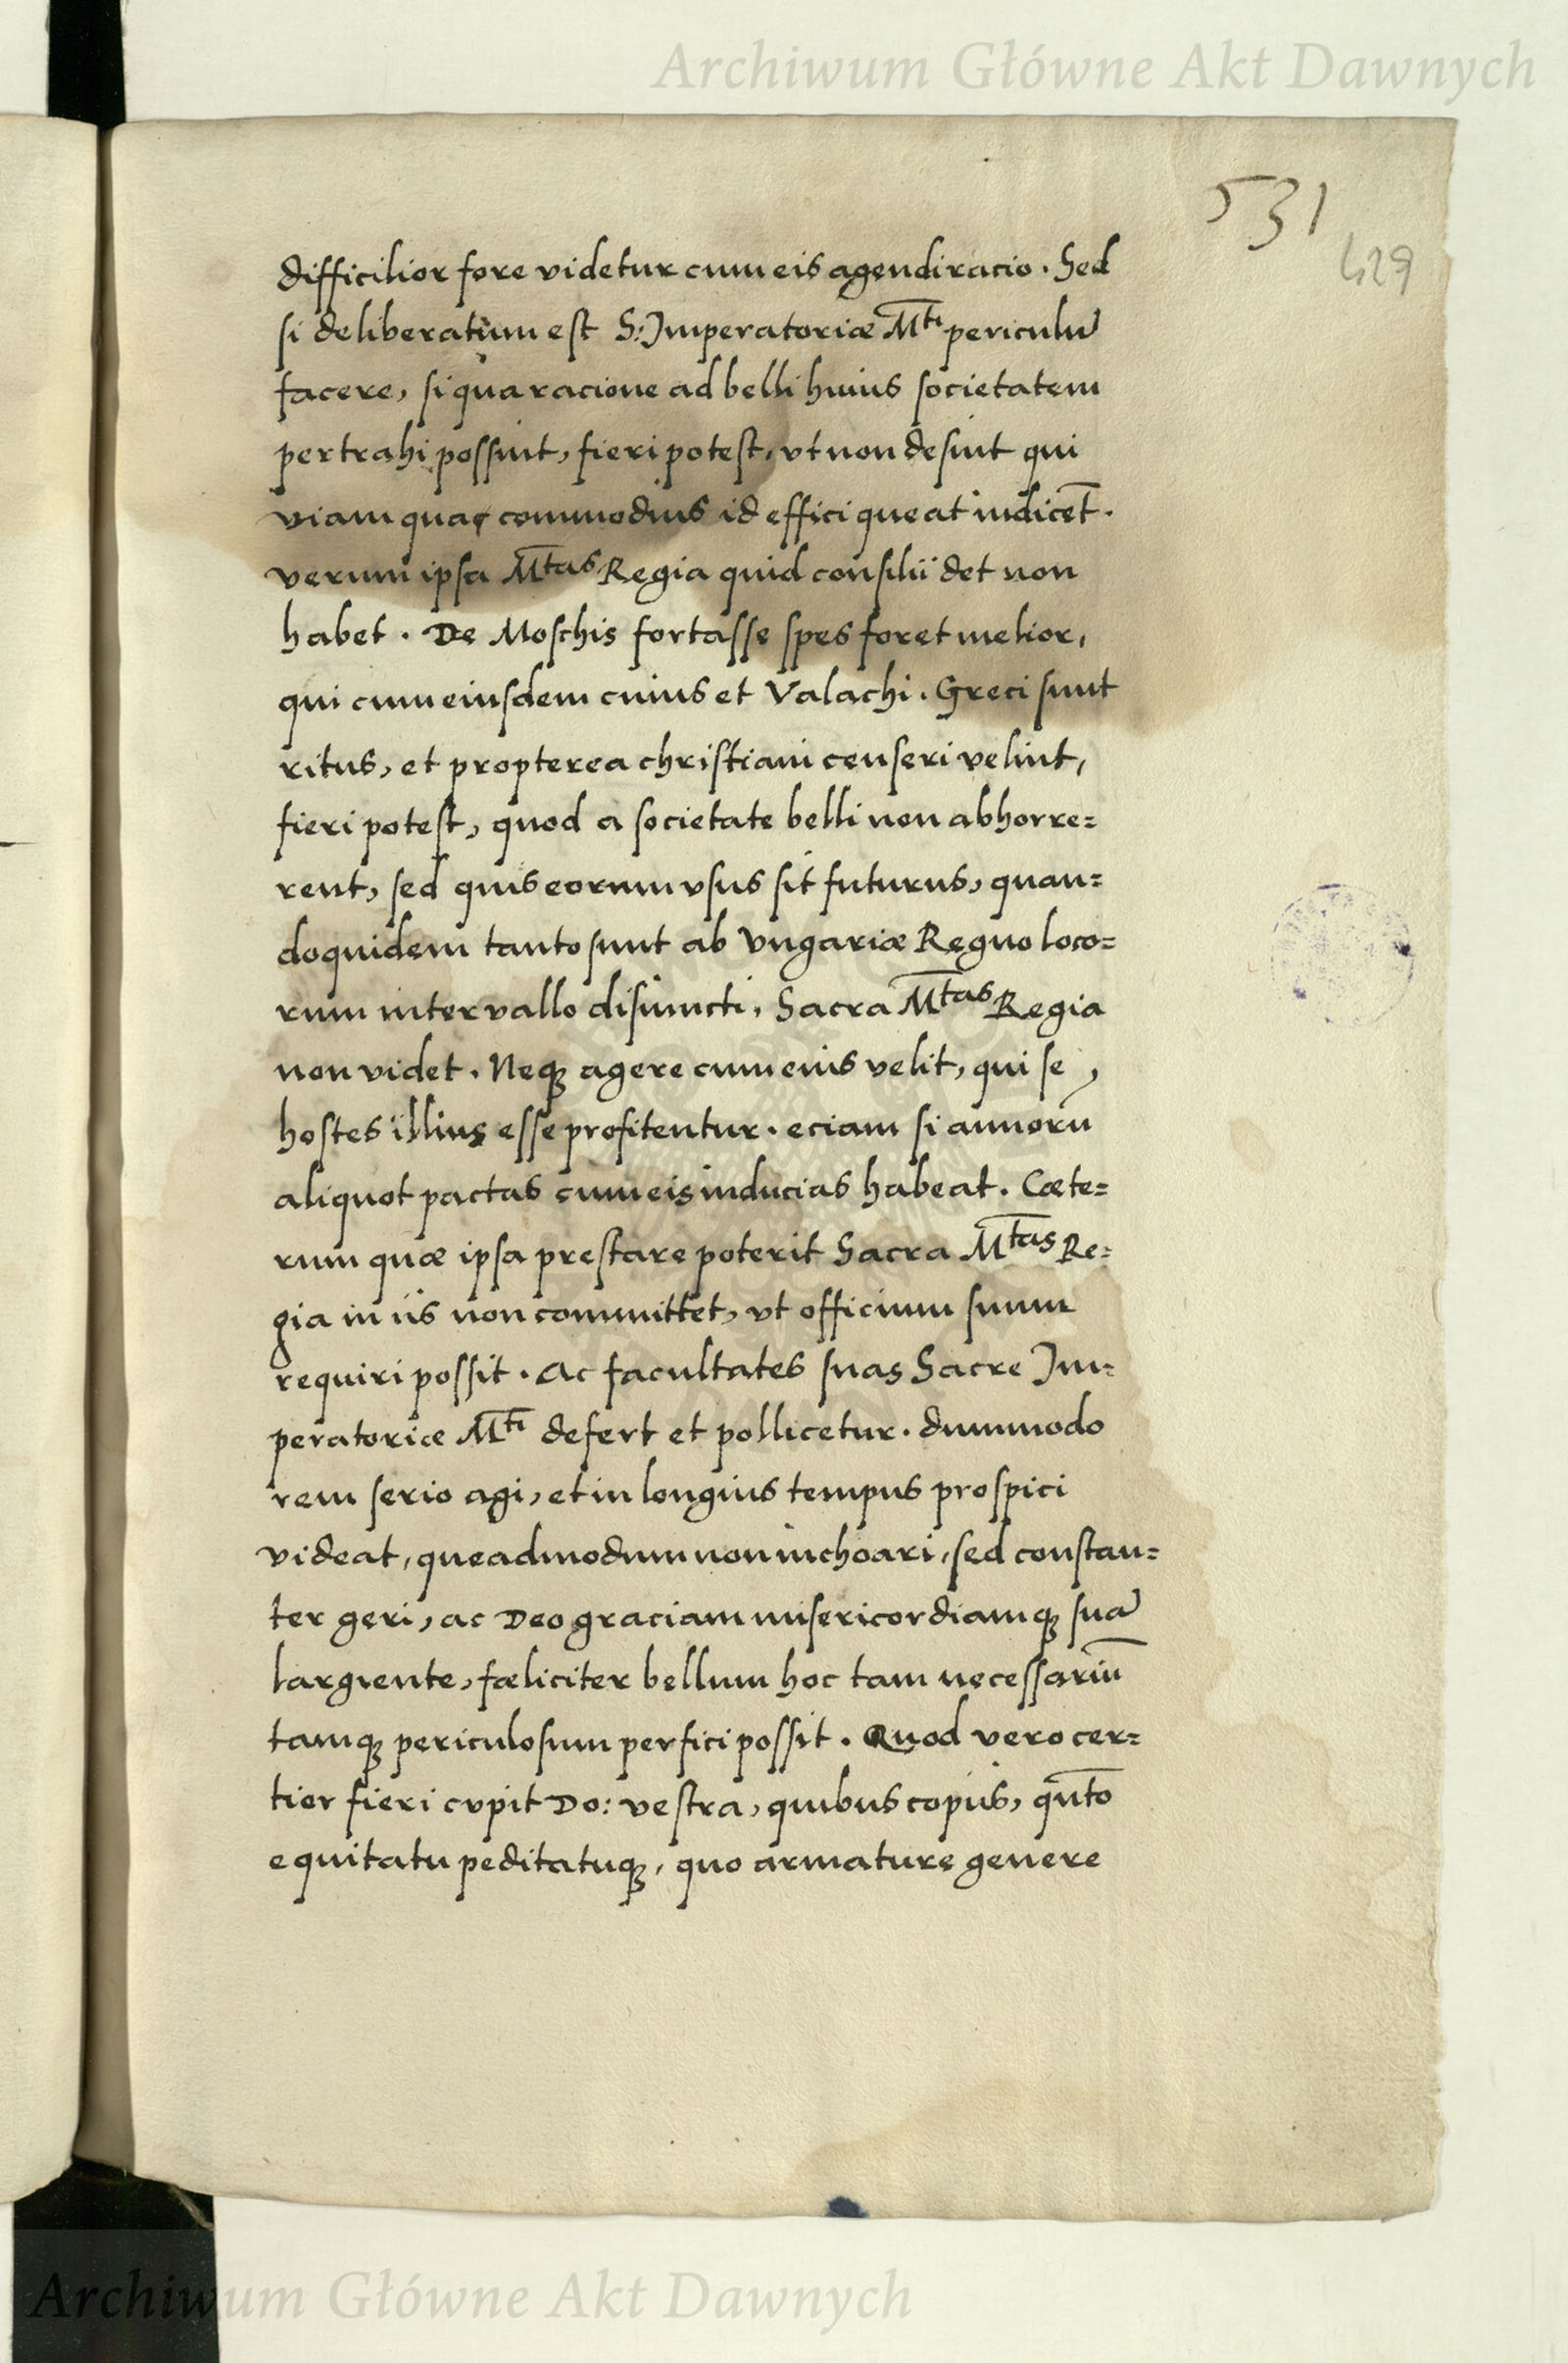 Archiwum Główne Akt Dawnych
531
429
difficilior fore videtur cum eis agendi racio. Sed
si deliberatum est S: Imperatoriæ M̅ti periculū
facere, si qua racione ad belli huius societatem
pertrahi possint, fieri potest, vt non desint qui
viam qua commodius id effici queat indicēt.
verum ipsa M̅tas Regia quid consilii det non
habet. De Moschis fortasse spes foret melior,
qui cum eiusdem cuius et Valachi. Greci sunt
ritus, et propterea christiani censeri velint,
fieri potest, quod a societate belli non abhorre=
rent, sed quis eorum vsus sit futurus, quan=
doquidem tanto sunt ab Vngariæ Regno loco=
rum intervallo disiuncti, Sacra M̅tas Regia
non videt. Neqꝫ agere cum eius velit, qui se,
hostes illius esse profitentur. eciam si annorū
aliquot pactas cum eis inducias habeat. Cæte=
rum quæ ipsa prestare poterit Sacra M̅tas Re=
gia in iis non committet, vt officium suum
requiri possit. Ac facultates suas Sacre Im=
peratoriæ M̅ti defert et pollicetur. dummodo
rem serio agi, et in longius tempus prospici
videat, queadmodum non inchoari, sed constan=
ter geri, ac Deo graciam misericordiamqꝫ suā
largiente, fæliciter bellum hoc tam necessariū
tamqꝫ periculosum perfici possit. Quod vero cer=
tior fieri cvpit Do: vestra, quibus copiis, qūto
equitatu peditatuqꝫ, quo armature genere
Archiwum Główne Akt Dawnych